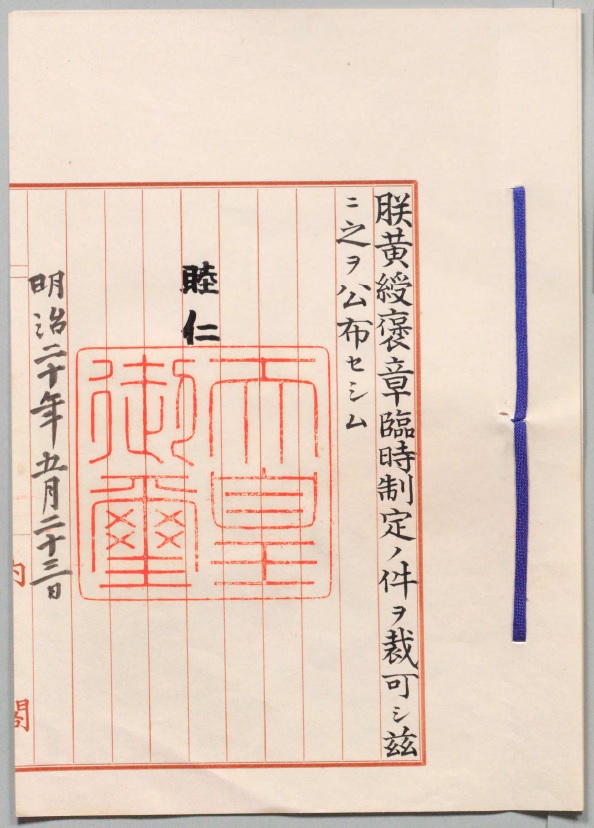 朕黄綬褒章臨時制定ノ件ヲ裁可シ玆
ニ之ヲ公布セシム
睦仁
天皇
御璽
明治二十年五月二十三日
内閣